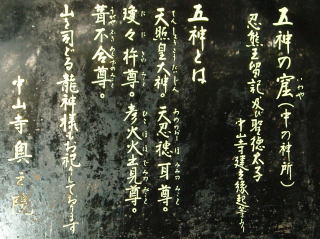 五神の窟(中の神所)
いわや
忍熊王留記及び聖徳太子
中山寺建立縁起等より
五神とは
天照皇大神。天忍穂耳尊。
瓊々杵尊。彦火火出見尊。
葺不合尊。
山を司どる龍神様をお祀りしてあります
中山寺奥之院